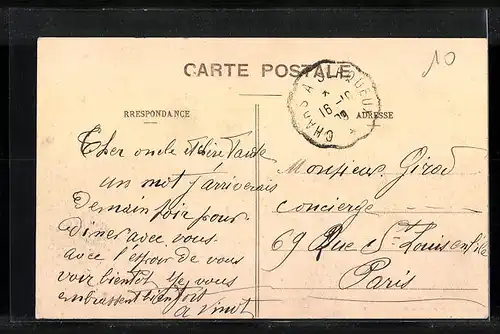 CARTE POSTALE
10
CHARS A MAGUEUX
16-10
09
RRESPONDANCE
ADRESSE
Cher oncle et chère Tante
un mot j'arriverais
Demain soir pour
Diner avec vous
avec l'espoir de vous
voir bientot Je vous
embrassent bien fort
a vinot
Monsieur Girod
concierge
69 Rue St Louis en file
Paris